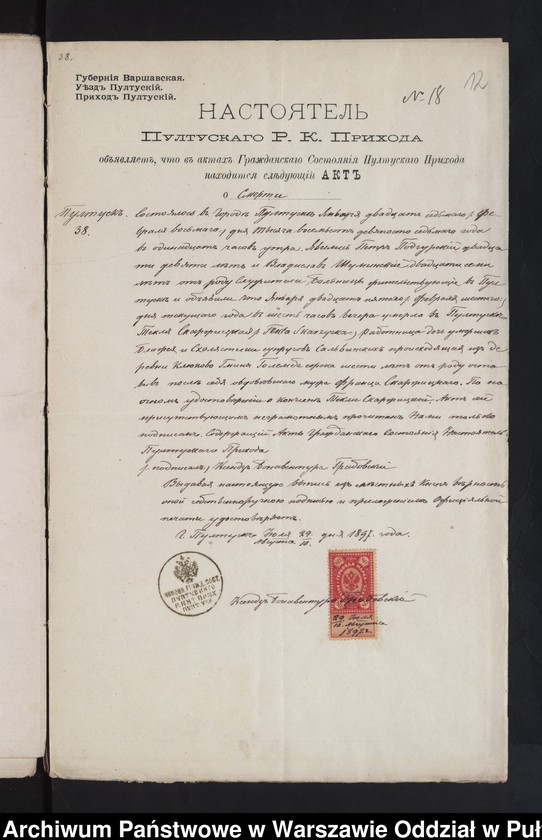 38.
Губернія Варшавская.
Уѣздъ Пултускій.
Приходъ Пултускій.
№ 18
12
НАСТОЯТЕЛЬ
Пултускаго Р. К. Прихода
объявляетъ, что въ актахъ Гражданскаго Состоянія Пултускаго Прихода
находится слѣдующій АКТЪ
о Смерти
Пултускъ.
38.
Состоялось въ городѣ Пултускѣ Января двадцать седьмаго / Фе-
враля восьмаго / дня тысяча восемьсотъ девяносто седьмаго года
въ одинадцать часовъ утра. Явились Петръ Подгурскій двадца
ти девяти лѣтъ и Владиславъ Шуминскій двадцати семи
лѣтъ отъ роду служители Больницы жительствующіе въ Пул-
тускѣ и объявили что Января двадцать пятаго / Февраля шестаго /
дня текущаго года въ шесть часовъ вечера умерла въ Пултускѣ
Текля работница дочь умершихъ
и Схоластики супруговъ происходящая изъ де-
ревни Клюково Гмина сорока шести лѣтъ отъ роду оста
вивъ послѣ себя овдовѣвшаго мужа Франца По на-
очномъ удостовѣреніи о кончинѣ Текли Актъ сей
присутствующимъ неграмотнымъ прочитанъ Нами только
подписанъ. Содержащій Акты Гражданскаго состоянія Настоятель
Пултускаго Прихода
/ подписалъ / Ксендзъ Бонавентура
Выдавая настоящую выпись изъ мѣстныхъ Книгъ вѣрность
оной собственноручною подписью и приложеніемъ Оффиціальной
печати удостовѣряетъ.
Г. Пултускъ Іюля 29 / Августа 10 дня 1897 года.
Ксендзъ Бонавентура
29 Іюля
10 Августа
1897 г.
Archiwum Państwowe w Warszawie Oddział w Puł